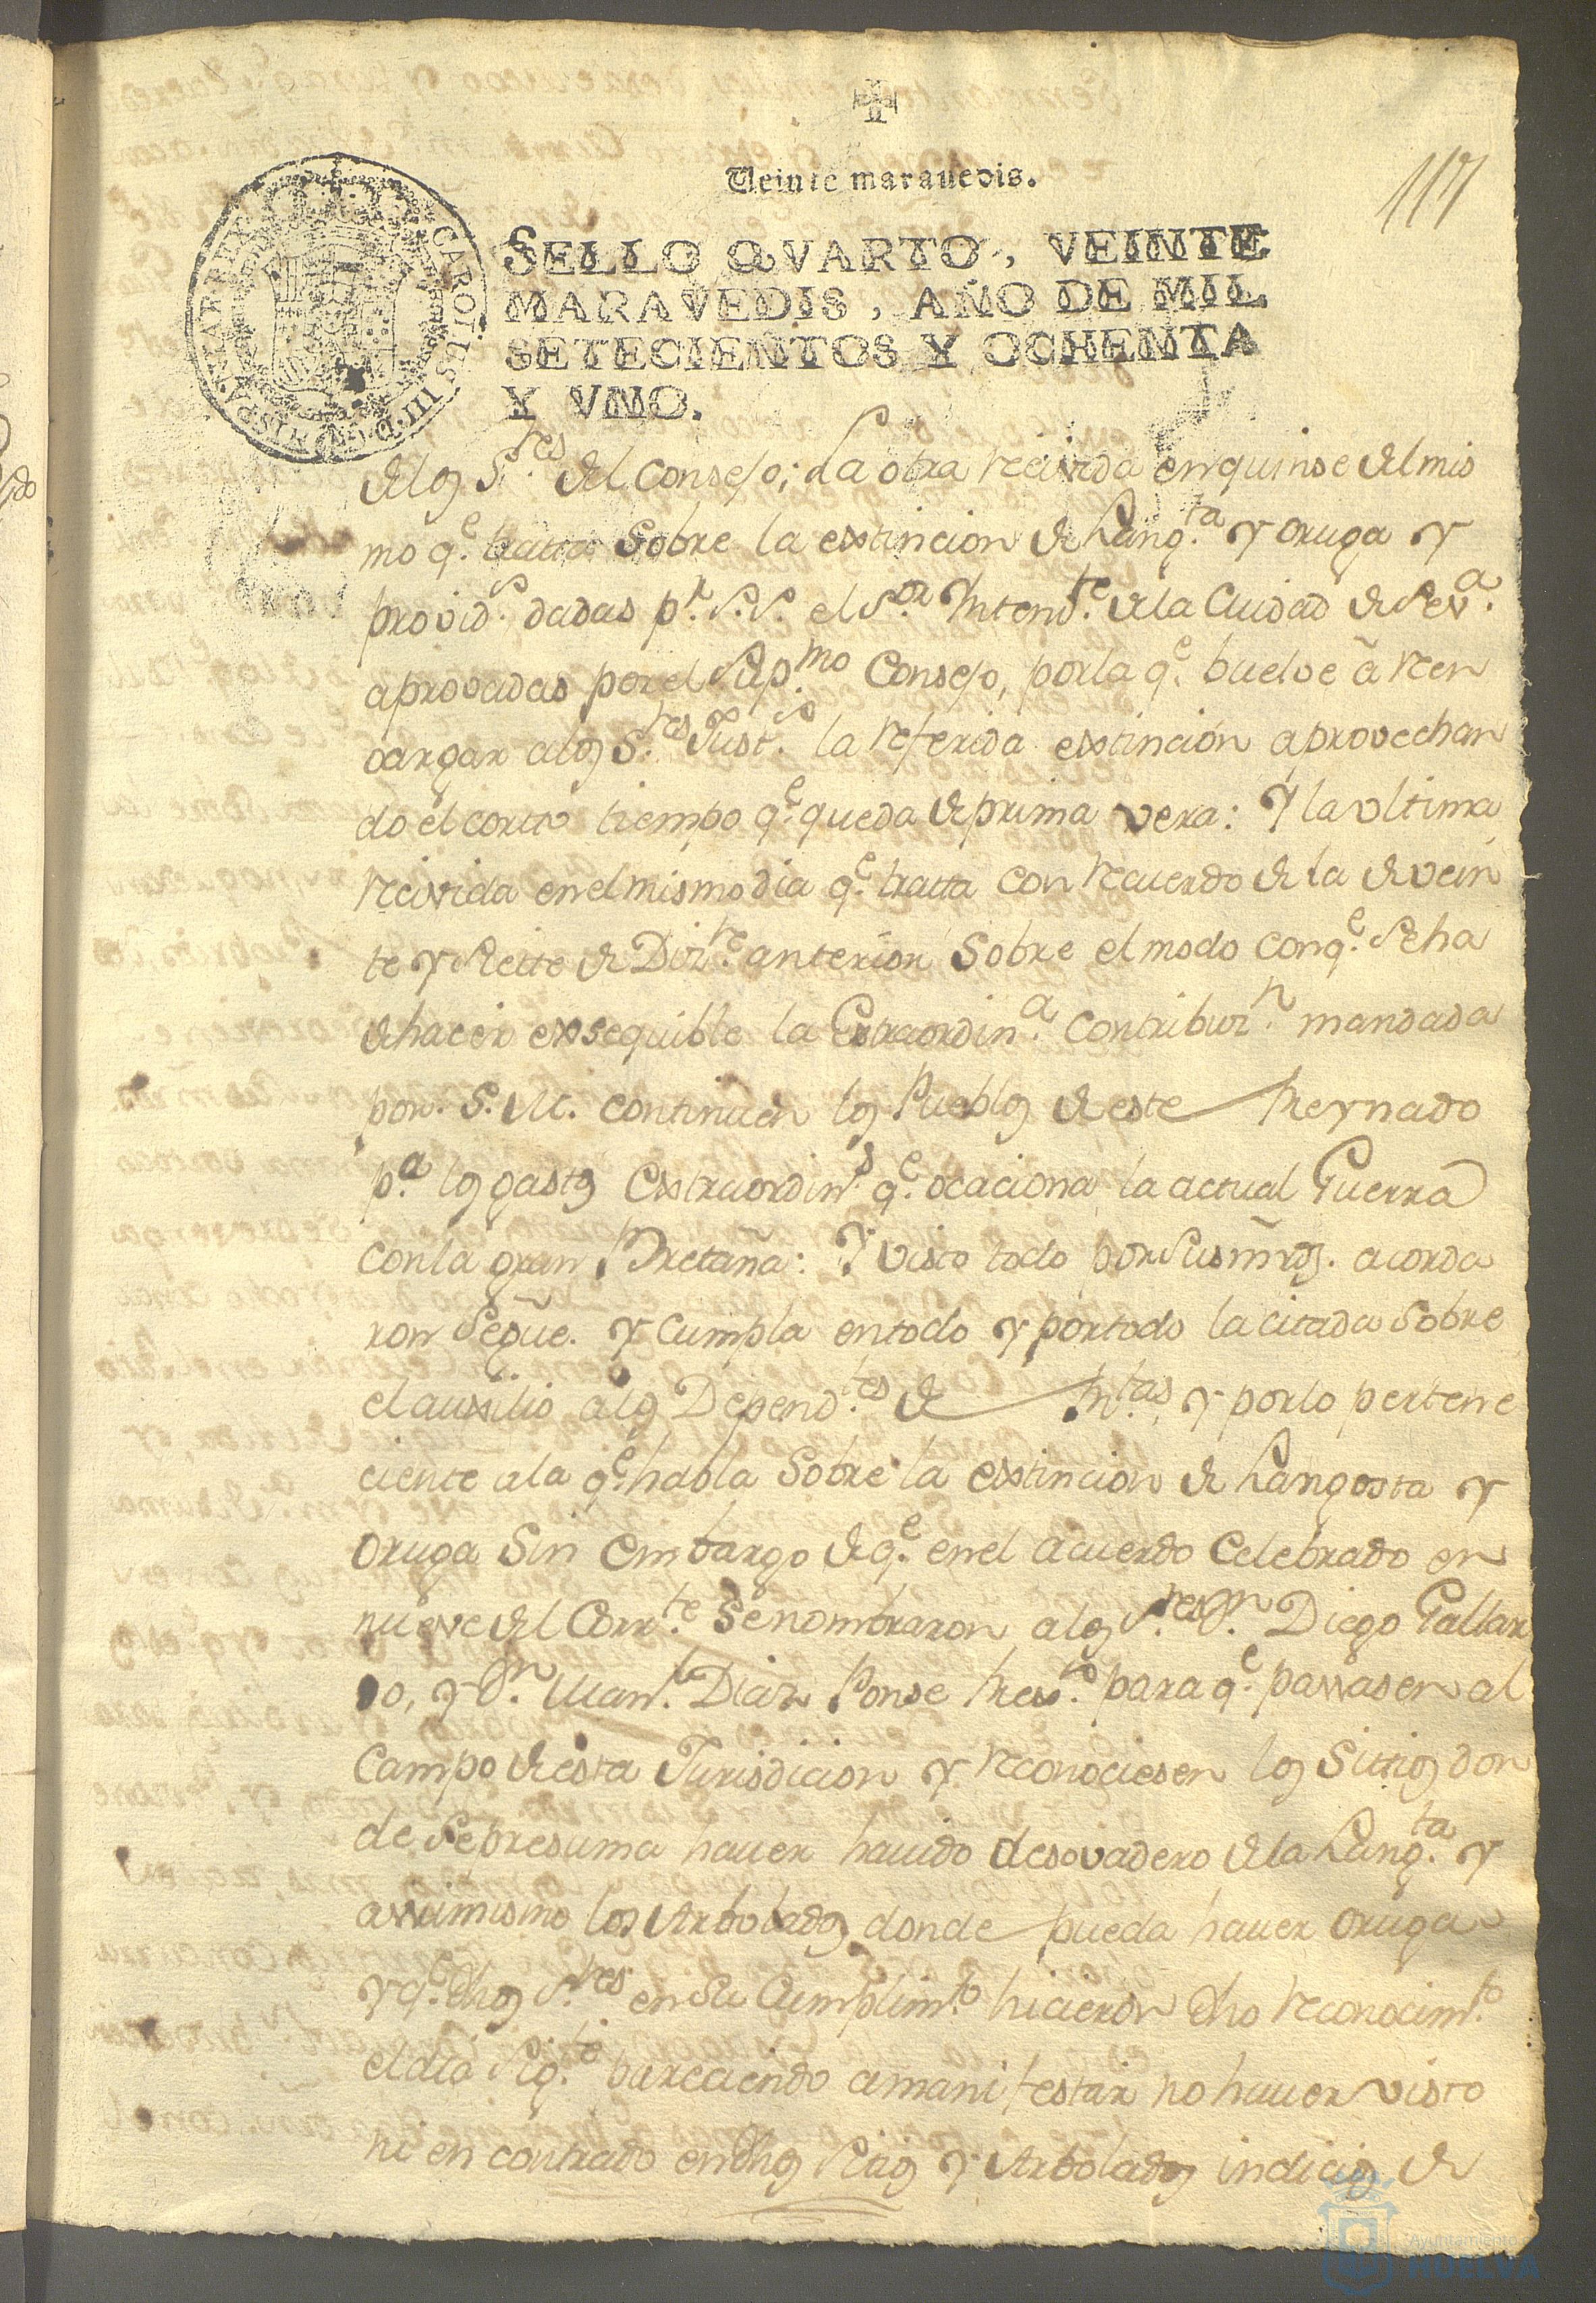 Veinte maravedis.
117
SELLO QVARTO, VEINTE
MARAVEDIS, AÑO DE MIL
SETECIENTOS Y OCHENTA
Y VNO.
CAROLUS III D G HISPANIAR REX
delos S.res del Consejo; La otra recivida en quinse del mis
mo q.e tratta Sobre la extincion de Lang.ta y oruga y
provid.s dadas p.r S.S. el S.or Intend.te de la Ciudad de Sev.a
aprovadas por el Sup.mo Consejo, por la q.e buelve â ren
cargar alos S.res Just.s la referida extinción aprovechan
do el corto tiempo q.e queda de prima vera: Y la vltima
recivida en el mismo dia q.e tratta con recuerdo de la de vein
te y siette de Diz.re anterior Sobre el modo con q.e Se ha
de hacer exsequible la Extraordin.a Contribuz.n mandada
por S. M. continuen los Pueblos de este Reynado
p.a los gastos Extraordin.s q.e ocaciona la actual Guerra
con la gran Bretaña: Y visto todo por Sus mrds. acorda
ron Segûe. y Cumpla en todo y por todo la citada Sobre
el auxilio alos Depend.tes de R.tas, y por lo pertene
ciente ala q.e habla Sobre la extincion de Langosta y
oruga Sin embargo de q.e en el acuerdo Celebrado en
nueve del Corr.te Se nombraron alos S.res D.n Diego Gallar
do, y D.n Man.l Diaz Ponse para q.e passasen al
Campo de esta Jurisdicion y reconociesen los Sitios don
de Se presuma haver havido desovadero de la Lang.ta y
assimismo los Arbolados donde pueda haver oruga
y q.e dhos S.res en Su Cumplim.to hicieron dho reconocim.to
el dia Sig.te pareciendo a manifestar no haver visto
ni en contrado en dhos Sitios y Arbolados indicios de
Ayuntamiento
HUELVA